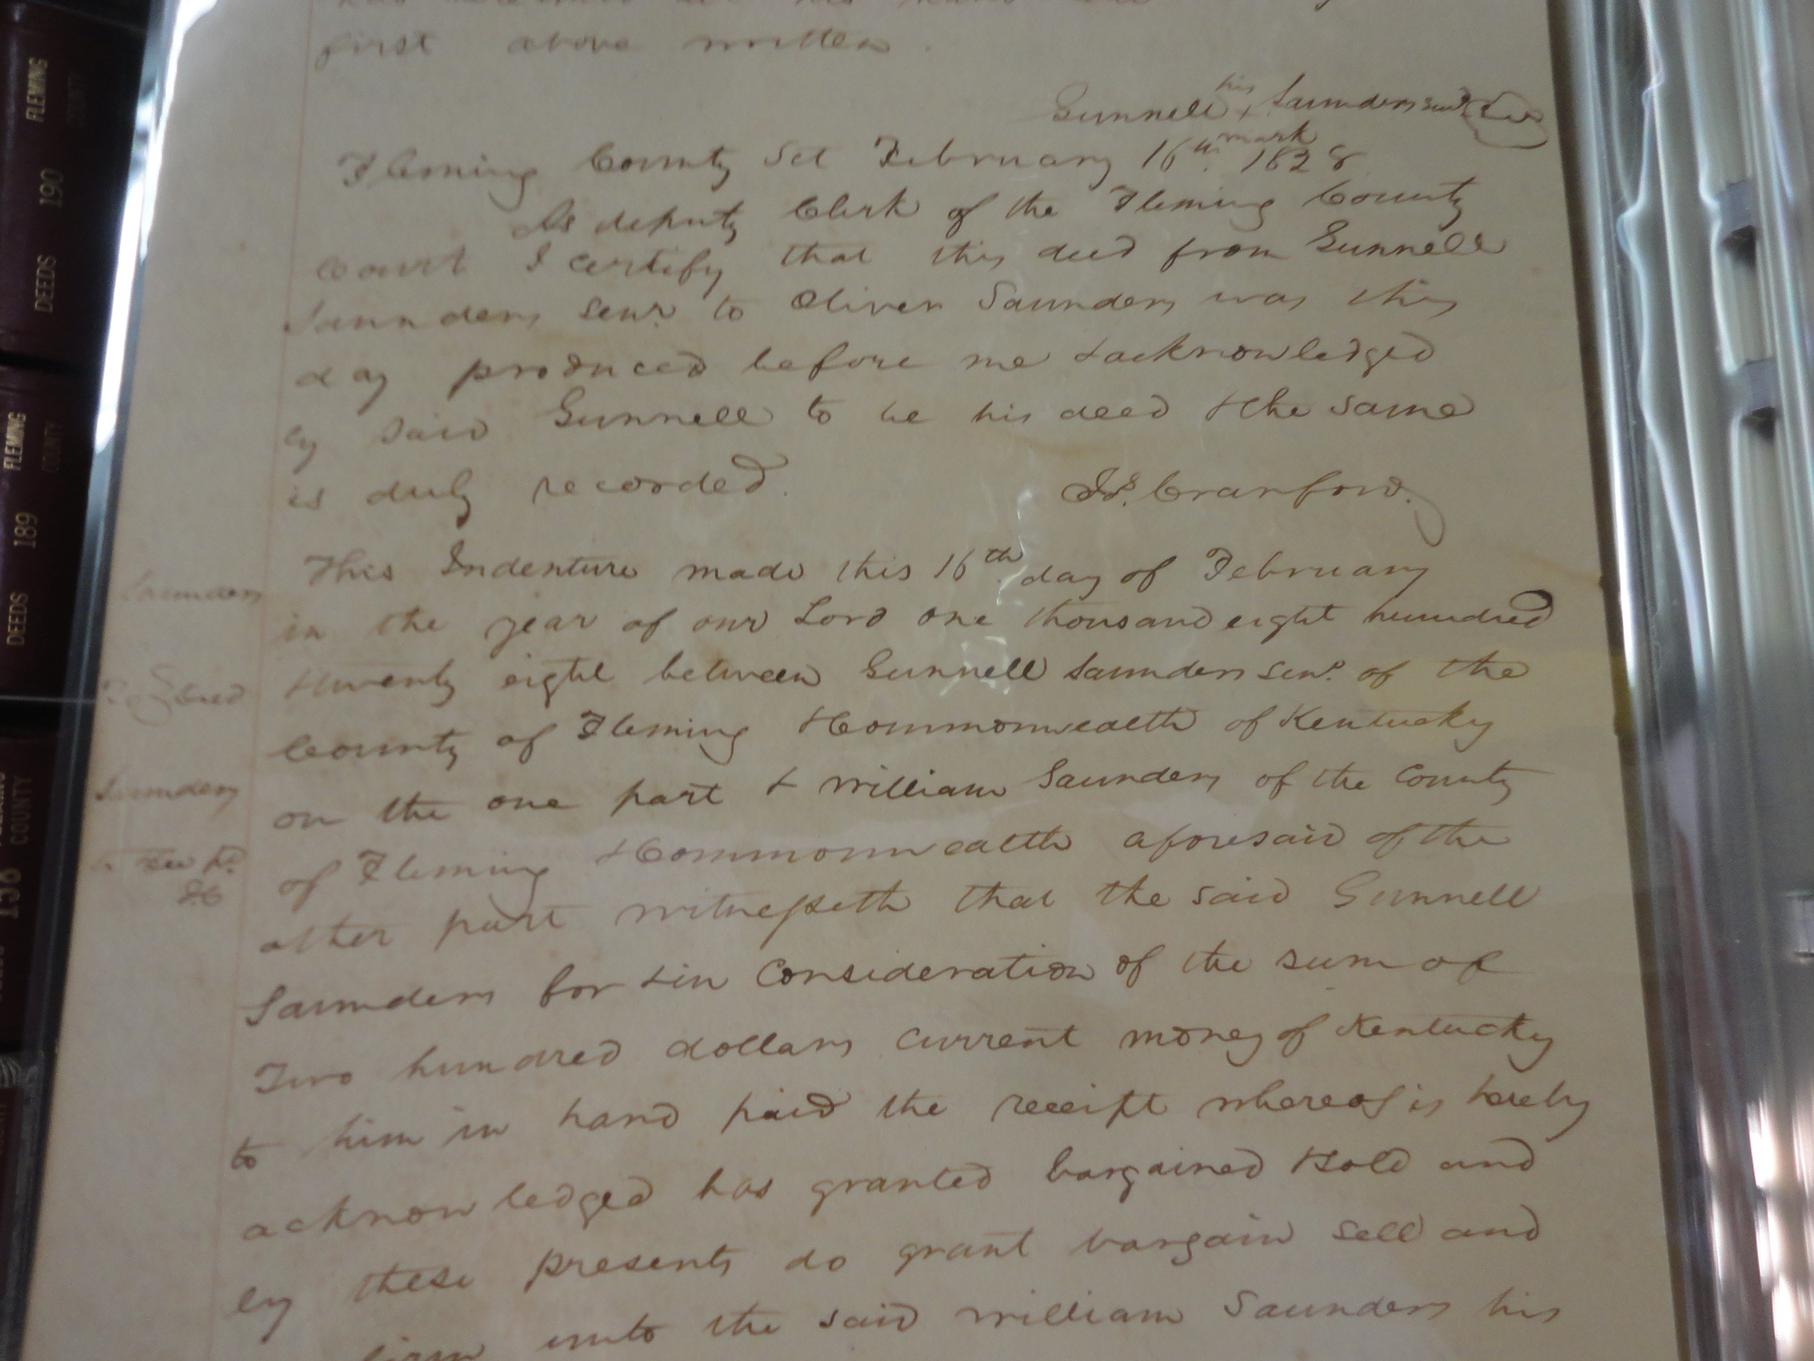 first above written.
his
Gunnell + Saunders senr. Seal
mark
Fleming County Set February 16th. 1828
As deputy Clerk of the Fleming County
Court I certify that this deed from Gunnell
Saunders senr. to Oliver Saunders was this
day produced before me & acknowledged
by said Gunnell to be his deed & the same
is duly recorded.
Js. Crawford.
This Indenture made this 16th. day of February
in the year of our Lord one thousand eight hundred
& twenty eight between Gunnell Saunders senr. of the
County of Fleming & Commonwealth of Kentucky
on the one part & William Saunders of the County
of Fleming & Commonwealth aforesaid of the
other part witnesseth that the said Gunnell
Saunders for & in Consideration of the sum of
Two hundred dollars current money of Kentucky
to him in hand paid the receipt whereof is hereby
acknowledged has granted bargained & sold and
by these presents do grant bargain sell and
unto the said William Saunders his
Saunders
To Deed
Saunders
FLEMING
COUNTY
190
DEEDS
FLEMING
COUNTY
189
DEEDS
COUNTY